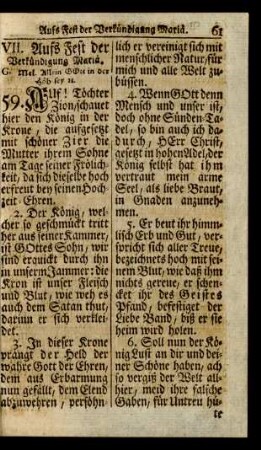 Aufs Fest der Verkündigung Mariä. 61
VII. Aufs Fest der
Verkündigung Mariä.
Mel. Allein GOtt in der
Höh sey rc.
59. AUf! Töchter
Zion, schauet
hier den König in der
Krone, die aufgesetzt
mit schöner Zier die
Mutter ihrem Sohne
am Tage seiner Frölich-
keit, da sich dieselbe hoch
erfreut bey seinen Hoch-
zeit-Ehren.
2. Der König, wel-
cher so geschmückt tritt
her aus seiner Kammer,
ist GOttes Sohn, wir
sind erquickt durch ihn
in unserm Jammer: die
Kron ist unser Fleisch
und Blut, wie weh es
auch dem Satan thut,
darum er sich verklei-
det.
3. In dieser Krone
prangt der Held der
wahre Gott der Ehren,
dem aus Erbarmung
nun gefällt, dem Elend
abzuwehren, versöhn-
lich er vereinigt sich mit
menschlicher Natur, für
mich und alle Welt zu
büssen.
4. Wenn GOtt denn
Mensch und unser ist,
doch ohne Sünden-Ta-
del, so bin auch ich da-
durch, HErr Christ,
gesetzt in hohen Adel, der
König selbst hat ihm
vertraut mein arme
Seel, als liebe Braut,
in Gnaden anzuneh-
men.
5. Er beut ihr himm-
lisch Erb und Gut, ver-
spricht sich aller Treue,
bezeichnets hoch mit sei-
nem Blut, wie daß ihm
nichts gereue, er schen-
cket ihr des Geistes
Pfand, befestiget der
Liebe Band, biß er sie
heim wird holen.
6. Soll nun der Kö-
nig Lust an dir und dei-
ner Schöne haben, ach
so vergiß der Welt all-
hier, meid ihre falsche
Gaben, für Untreu hü-
te